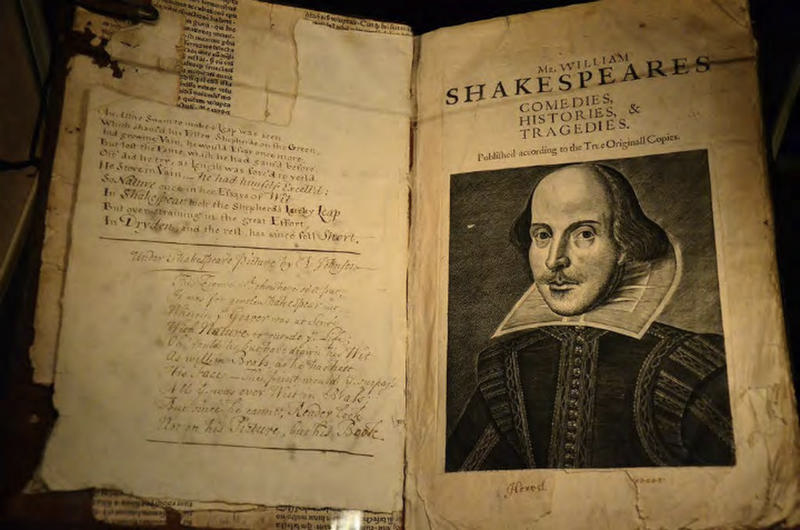 An Active Swain to make a Leap was seen
Which sham'd his Fellow Shepherds on the Green,
And growing Vain, he would Essay once more,
But lost the Fame, which he had gain'd before
Oft' did he try, at length was forc'd to yeild
He Strove in Vain – he had himself Excell'd:
So Nature once in her Essays of Wit
In Shakespear took the Shepherd's Lucky Leap
But over-straining in the great Effort,
In Dryden, and the rest, has since fell Short.
Under Shakespears Picture by Johnson
This Figure
It was for gentle Shakespear cut
Wherein y Graver was at Strife
With Nature to outdo y Life;
O, could he but have drawn his Wit
As well in Brass, as he has hitt
His Face – The print would y surpass
All y was ever Writ in Brass;
But since he cannot, Reader look
Not on his Picture, but his Book.
Mr. WILLIAM
SHAKESPEARES
COMEDIES,
HISTORIES, &
TRAGEDIES.
Published according to the True Originall Copies.